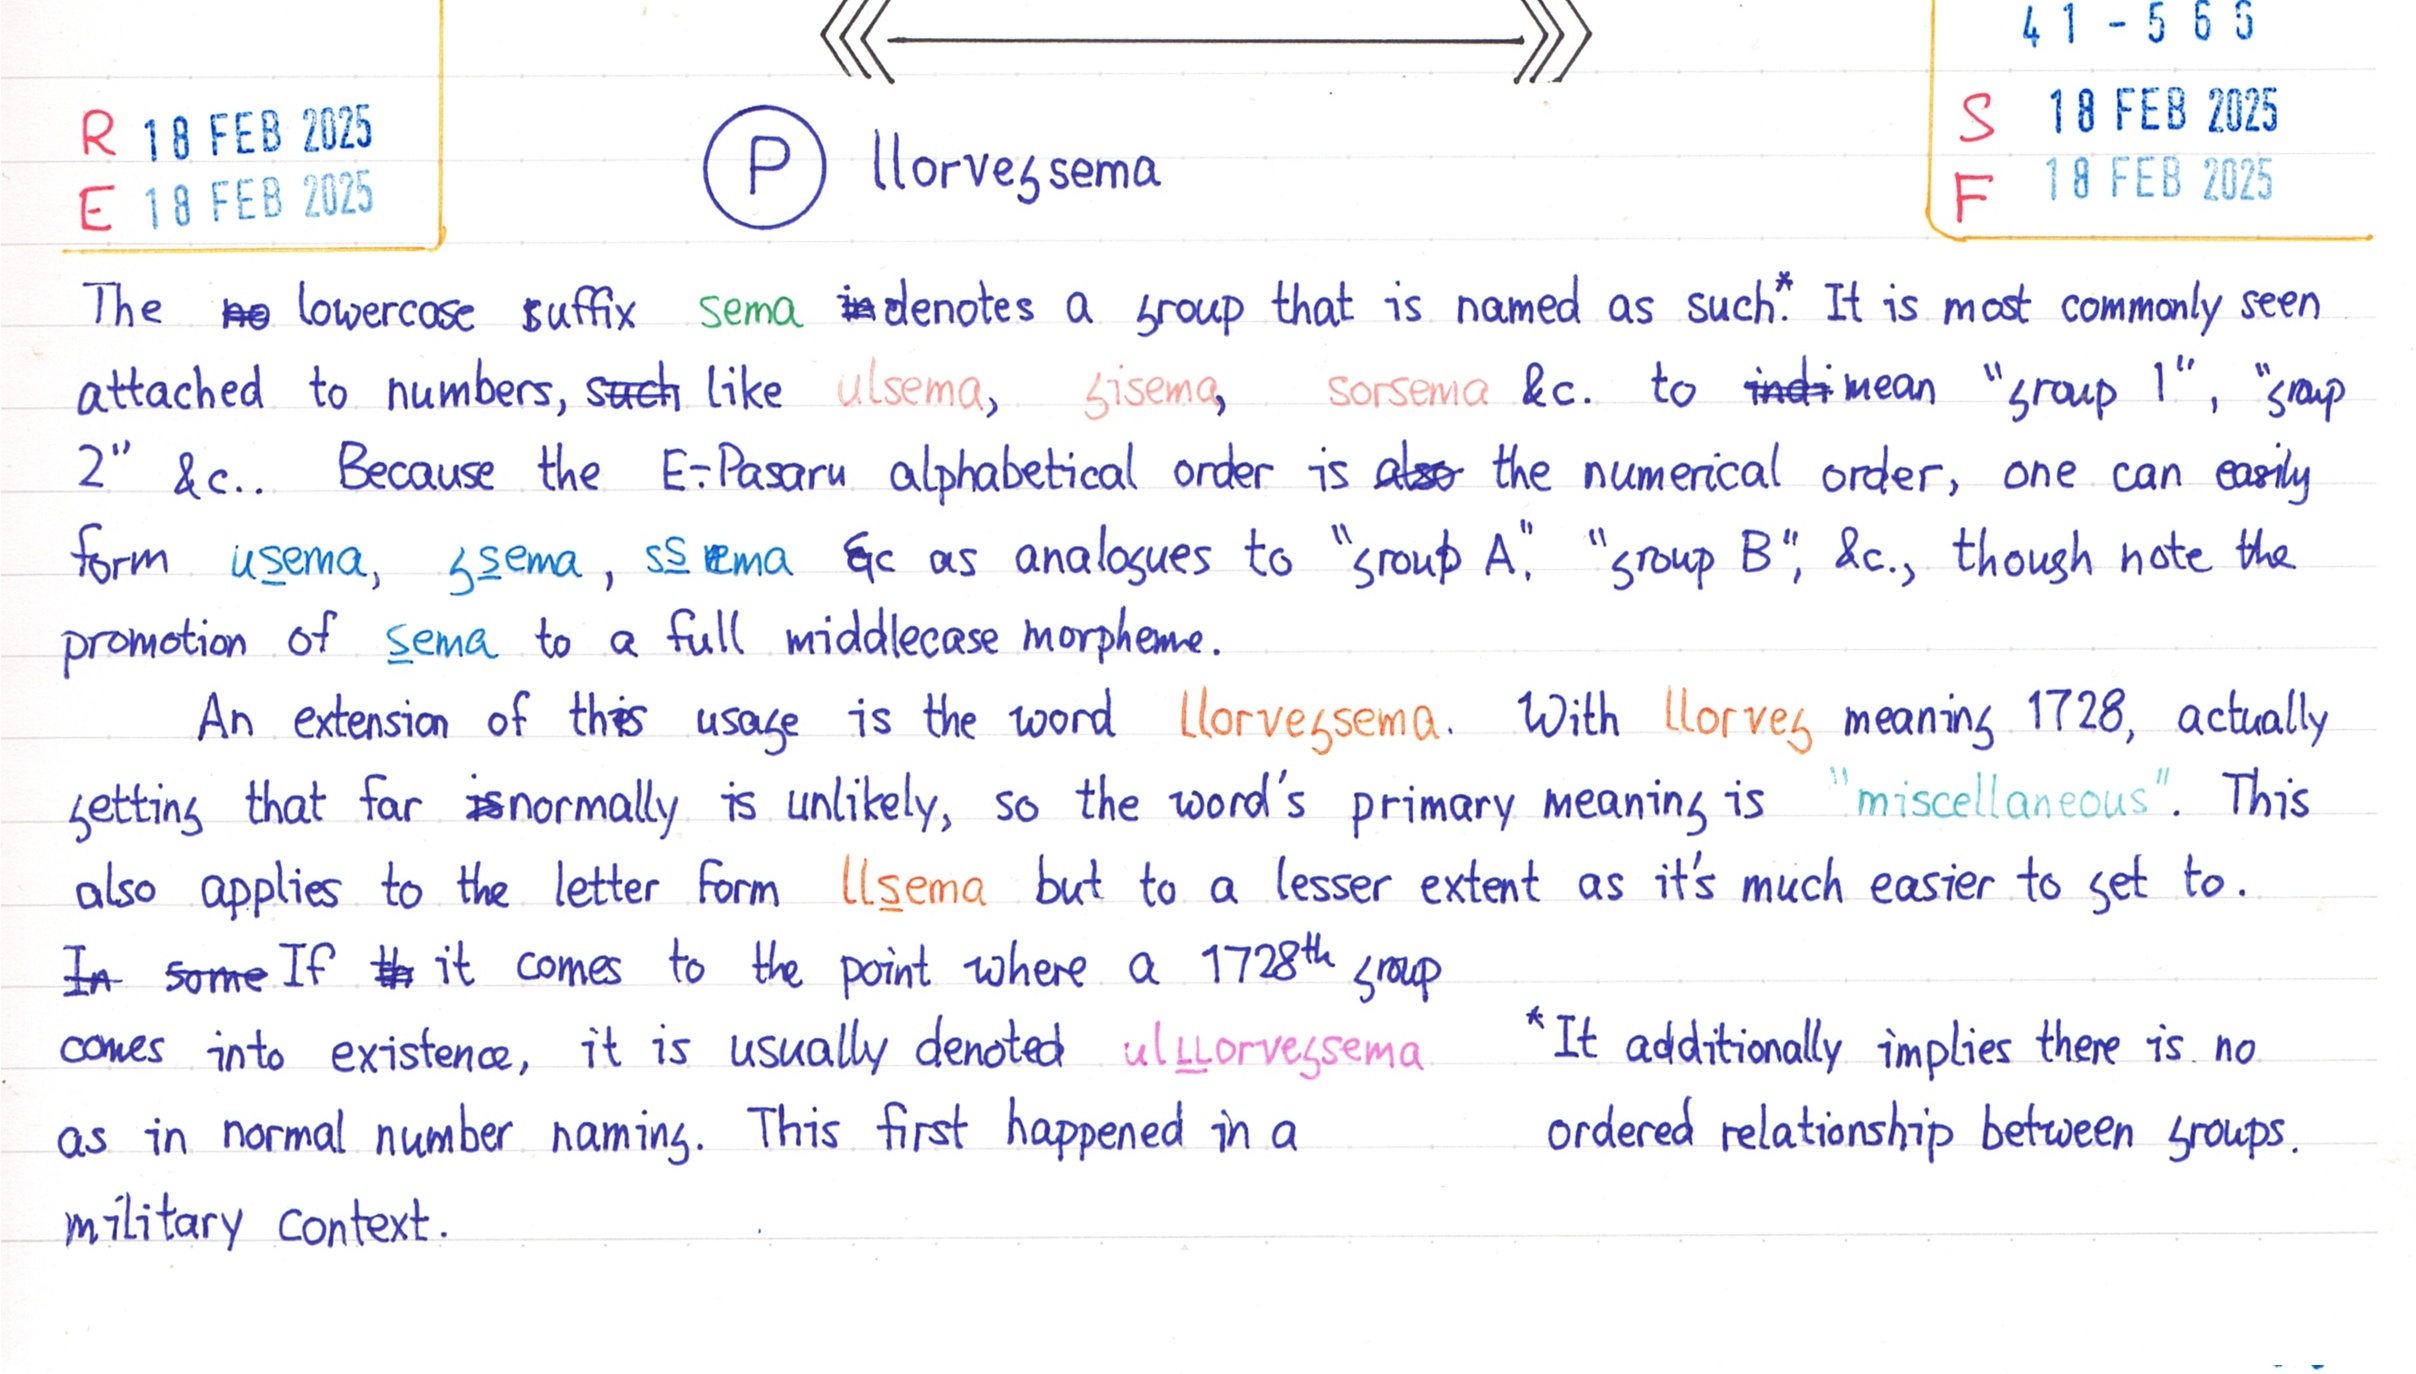 41-566
R 18 FEB 2025
E 18 FEB 2025
P llorvegsema
S 18 FEB 2025
F 18 FEB 2025
The ~~no~~ lowercase suffix sema ~~in~~ denotes a group that is named as such.* It is most commonly seen
attached to numbers, ~~such~~ like ulsema, gisema, sorsema &c. to ~~indi~~ mean "group 1", "group
2" &c.. Because the E-Pasaru alphabetical order is ~~also~~ the numerical order, one can easily
form usema, gsema, ssema &c as analogues to "group A", "group B", &c., though note the
promotion of sema to a full middlecase morpheme.
An extension of this usage is the word llorvegsema. With llorveg meaning 1728, actually
getting that far ~~is~~ normally is unlikely, so the word's primary meaning is "miscellaneous". This
also applies to the letter form llsema but to a lesser extent as it's much easier to get to.
~~In some~~ If ~~th~~ it comes to the point where a 1728th group
comes into existence, it is usually denoted ulllorvegsema
as in normal number naming. This first happened in a
military context.
*It additionally implies there is no
ordered relationship between groups.